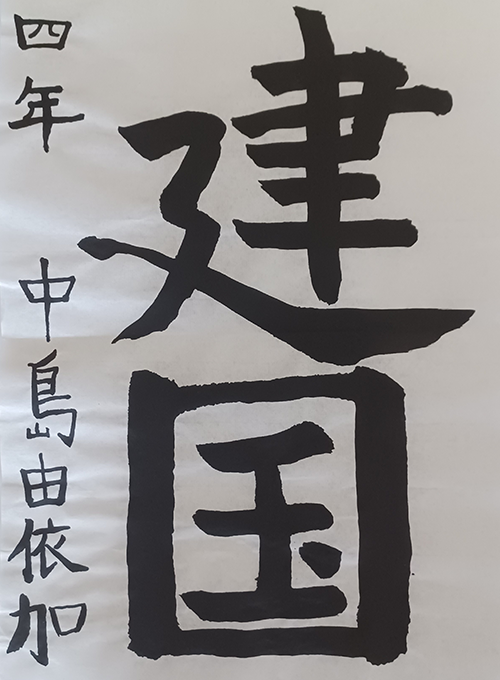 建国
四年 中島由依加